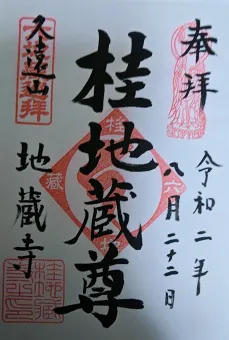 奉拝
令和二年
八月二十二日
桂地蔵尊
久遠山
地蔵寺
桂
六
地
蔵